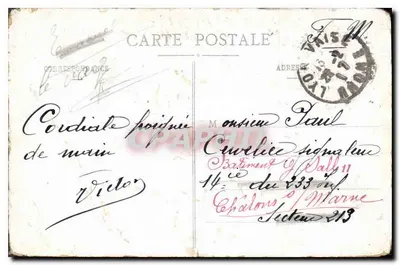 F. M.
CARTE POSTALE
CORRESPONDANCE
ADRESSE
LYON VAISE
RHONE
Cordiale poignée
de main
Victor
Monsieur Paul
signaleur
14ce du 233 Inf
Batiment
Châlons s/ Marne
Secteur 213